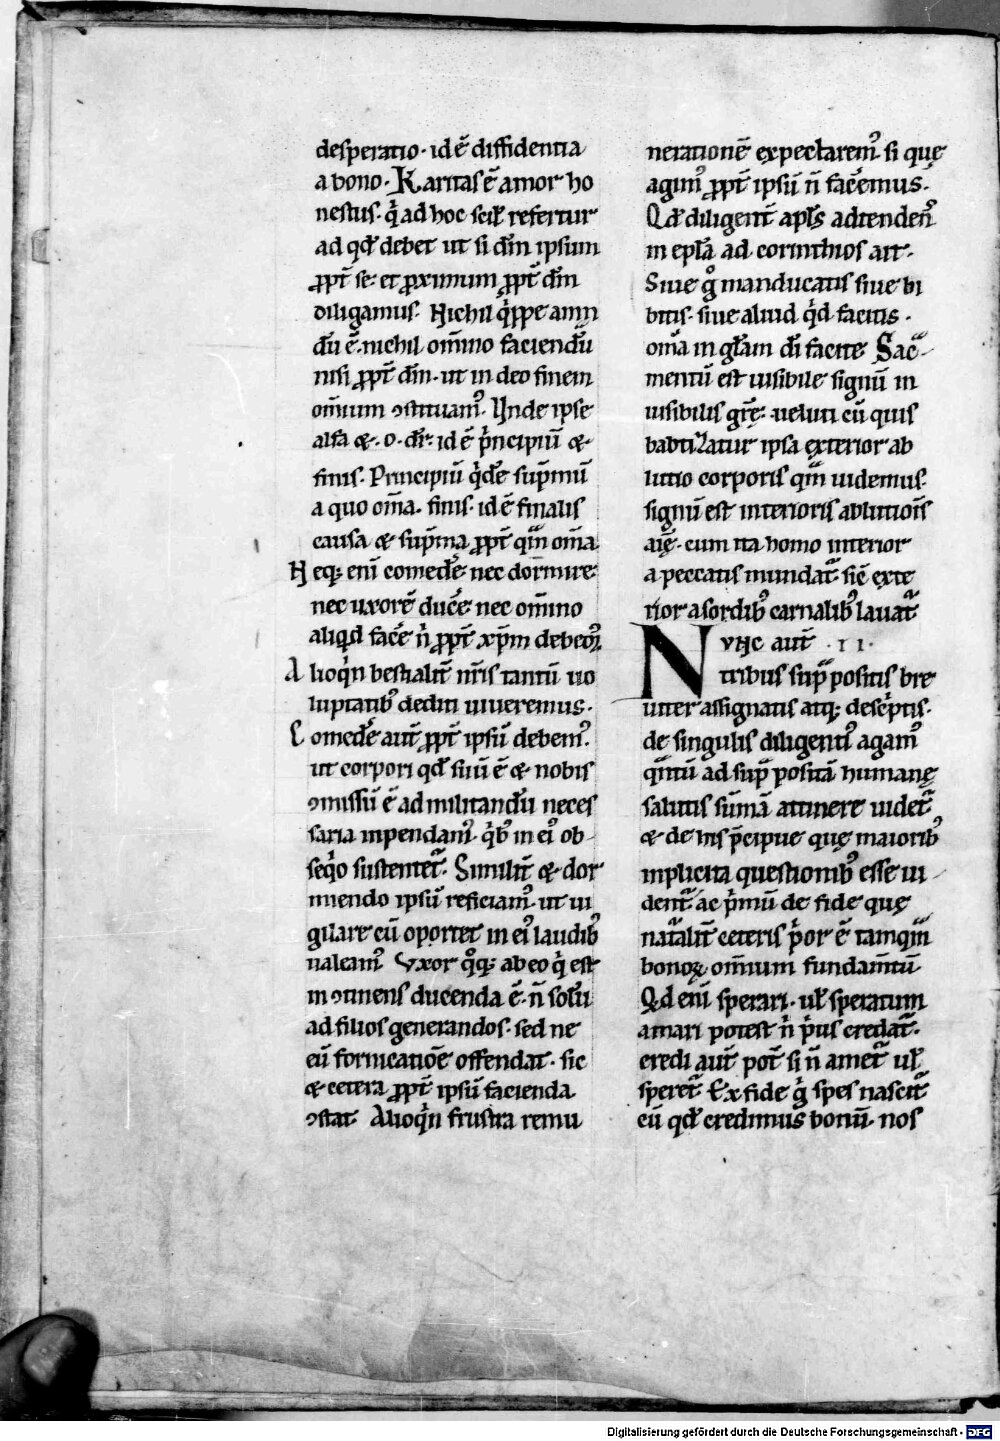 desperatio · id ē diffidentia
a bono · Karitas ē amor ho
nestus · qͥ ad hoc scil᷑ refertur
ad qd̄ debet ut si dm̄ ipsum
ꝓpt̄ se · et proximum ꝓpt̄ dm̄
diligamus · Nichil qͥppe amn
dū ē · nichil om̄ino faciendū
nisi ꝓpt̄ dm̄ · ut in deo finem
om̄ium ꝯstituamꝰ · Unde ipse
alfa & · o · dr̄ · id ē pͥncipiū &
finis · Principiū qͥdē sup̄mū
a quo om̄a · finis · id ē finalis
causa & sup̄ma ꝓpt̄ qᷓm om̄a
Neq; eni comedēe nec dormire
nec uxorē ducēe nec om̄ino
aliqͥd facēe n̄ ꝓpt̄ xp̄m debemꝰ
Alioqͥn bestialit̄ nr̄is tantū uo
luptatibꝰ dediti uiueremus ·
Comedēe aut̄ ꝓpt̄ ipsū debemꝰ ·
ut corpori qd̄ suū ē & nobis
ꝯmissū ē ad militandū neces
saria inpendamꝰ · qͥbꝰ in eiꝰ ob
seqͥo sustentetᷣ · Similit̄ & dor
miendo ipsū reficiamꝰ · ut ui
gilare cū oportet in eiꝰ laudibꝰ
ualeamꝰ Uxor qͦq; ab eo qͥ est
in ꝯtinens ducenda ē · n̄ solū
ad filios generandos · sed ne
eū fornicatiōe offendat · sic
& cetera ꝓpt̄ ipsū facienda
ꝯstat Alioqͥn frustra remu
nerationē expectaremꝰ · si quę
agimꝰ ꝓpt̄ ipsū n̄ facēemus ·
Qd̄ diligent̄ apl̄s adtendenꝰ
in epl̄a ad corinthios ait ·
Siue gͦ manducatis siue bi
bitis · siue aliud qͥd facitis ·
om̄a in gl̄am dī facite Sacᷓ
mentū est uisibile signū in
uisibilis grē · ueluti cū quis
babtizatur ipsa exterior ab
lutio corporis qᷓm uidemus ·
signū est interioris ablutiōis
aīę · cum ita homo interior
a peccatis mundatᷣ · sic̄ exte
rior a sordibꝰ carnalibꝰ lauatᷣ
Nunc aut̄ · II ·
tribus supᷓ positis bre
uiter assignatis atq; descͥptis ·
de singulis diligentiꝰ agamꝰ
qᷓntū ad supᷓ positā humanę
salutis sūmā attinere uidetᷣ
& de his p̄cipue quę maioribꝰ
inplicita questionibꝰ esse ui
dentᷣ ac pͥmū de fide quę
natᷣalit̄ ceteris pͥor ē tamqᷓm
bonoꝝ om̄ium fundam̄tū
Qd eni sperari · ul᷑ speratum
amari potest n̄ pͥus credatᷣ ·
credi aut̄ pot̄ si n̄ ametᷣ ul᷑
speretᷣ Ex fide gͦ spes nascitᷣ
cū qd̄ credimus bonū · nos
Digitalisierung gefördert durch die Deutsche Forschungsgemeinschaft - DFG